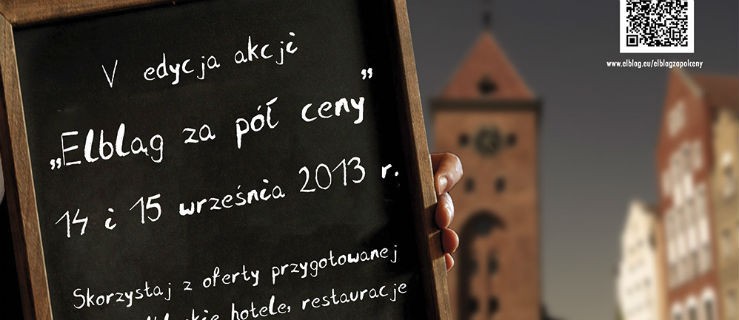 V edycja akcji
„Elbląg za pół ceny”
14 i 15 września 2013 r.
Skorzystaj z oferty przygotowanej
hotele, restauracje
www.elblag.eu/elblagzapolceny